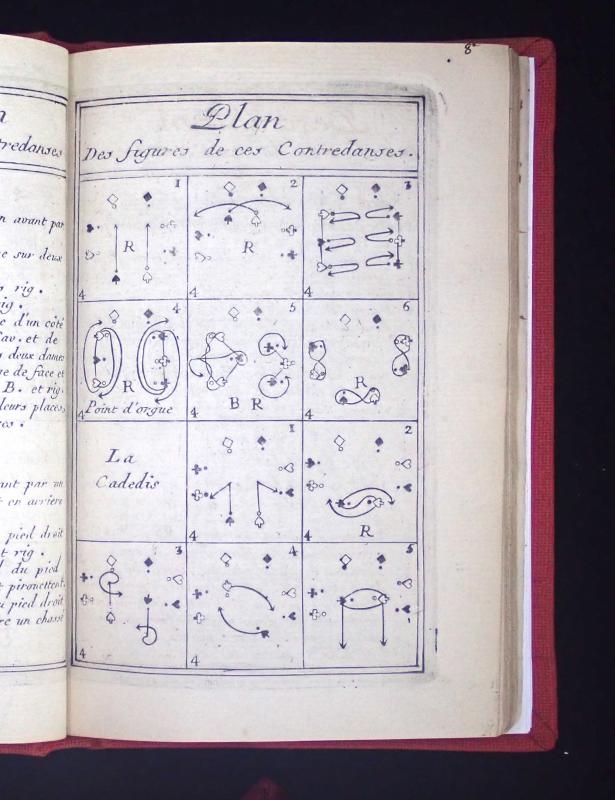 8
n
tredanses
n avant par
e sur deux
rig .
ig .
e d'un côté
av. et de
s deux dames
ue de face et
B. et rig.
leurs places,
res .
ant par un
t en arriere
pied droit
t rig .
du pied
t pirouettent.
u pied droit
re un chassé
Plan
Des figures de ces Contredanses.
1
R
4
2
R
4
3
4
4
R
Point d'orgue
4
5
B R
4
6
R
La
Cadedis
1
4
2
R
4
3
4
4
4
5